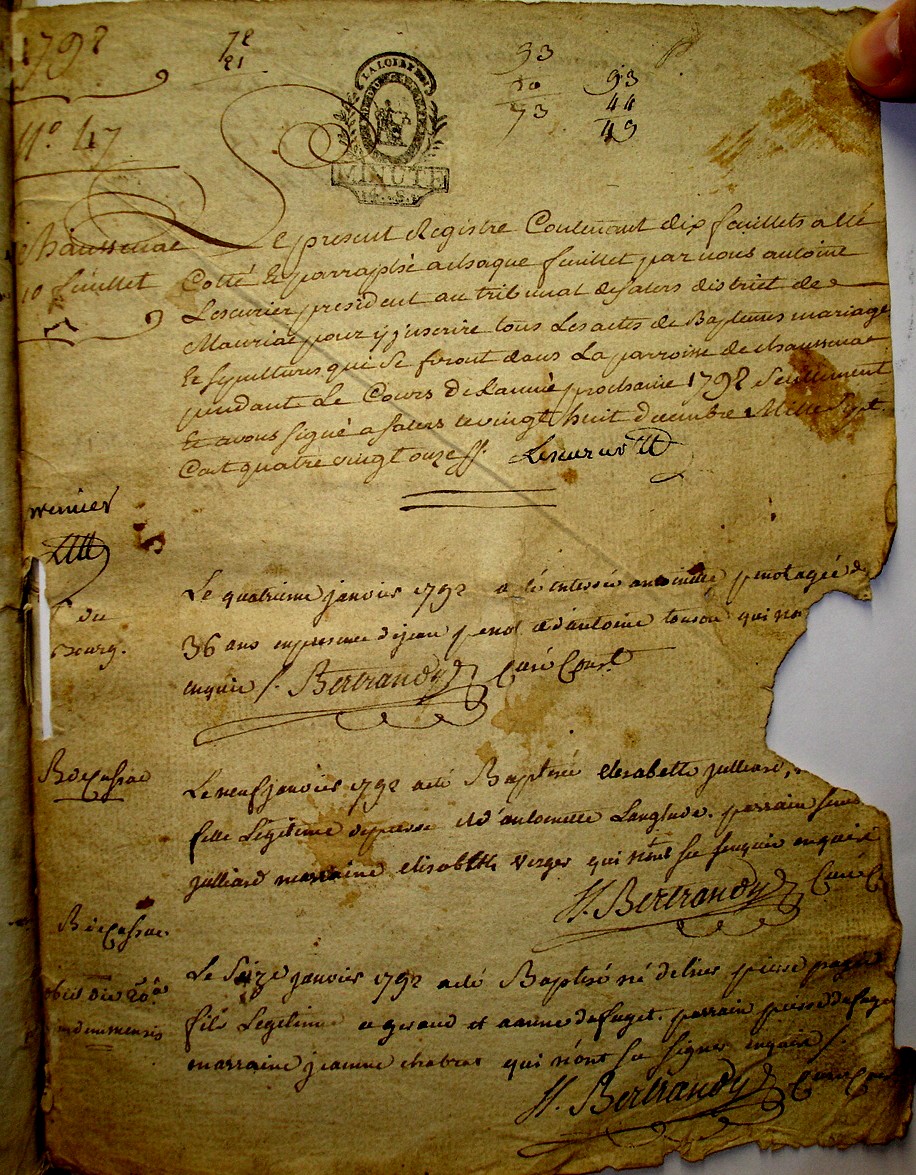 1792
N° 47
93
20
73
93
44
49
LA LOI
MINUTE
Chaussenac
10 feuillet
Le present Registre Contenant dix feuillets a été
Cotté Et parraphé a chaque feuillet par nous antoine
Lescurier president au tribunal de salers district de
Mauriac pour y inscrire tous Les actes de Baptemes mariage
Et sepultures qui se feront dans La parroisse de chaussenac
pendant Le Cours de L'année prochaine 1792 Seulement
Et avons signé a salers le vingt huit decembre Mille Sept
Cent quatre vingt onze
premier
du
Bourg.
Le quatrieme janvier 1792 a été enterrée antoinette penot agée de
36 ans en presence de jean penot et d'antoine qui
enquis Bertrandy Curé Const.
B de Cussac
Le neuf janvier 1792 a été Baptisée elisabeth julliard,
fille Legitime de pierre et d'antoinette Langlade. parrain
julliard marraine elisabeth verger qui n'ont su signer enquis
H. Bertrandy Curé
B de Cussac
obiit die 20a
eiusdem mensis
Le Seize janvier 1792 a été Baptisé né d'hier pierre
fils Legitime a geraud et a anne dufayet. parrain pierre dufayet
marraine jeanne chabrat qui n'ont su signer enquis
H. Bertrandy Curé